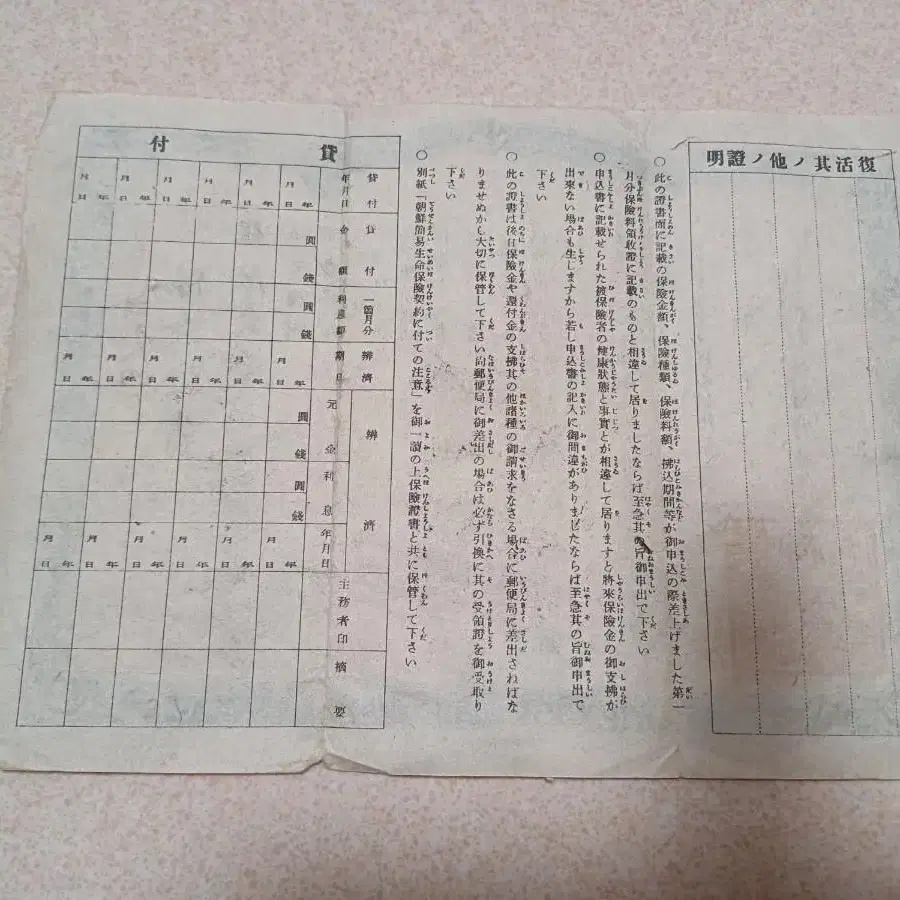 復活其ノ他ノ證明
○此の證書面に記載の保險金額、保險種類、保險料額、拂込期間等が御申込の際差上げました第一
月分保險料領收證に記載のものと相違して居りましたならば至急其の旨御申出で下さい
○申込書に記載せられた被保險者の健康狀態と事實とが相違して居りますと將來保險金の御支拂が
出來ない場合も生じますから若し申込書の記入に御間違がありましたならば至急其の旨御申出で
下さい
○此の證書は後日保險金や還付金の支拂其の他諸種の御請求をなさる場合に郵便局に差出されねばな
りませぬから大切に保管して下さい尙郵便局に御差出の場合は必ず引換に其の受領證を御受取り
下さい
○別紙「朝鮮簡易生命保險契約に付ての注意」を御一讀の上保險證書と共に保管して下さい
貸付
貸付年月日
年月日 年月日 年月日 年月日 年月日
貸付金額
圓 錢
一箇月分利息額
圓 錢
辨濟期日
年月日 年月日 年月日 年月日 年月日
辨濟
元金
圓 錢
利息
圓 錢
年月日
年月日 年月日 年月日 年月日 年月日 年月日
主務者印
摘要